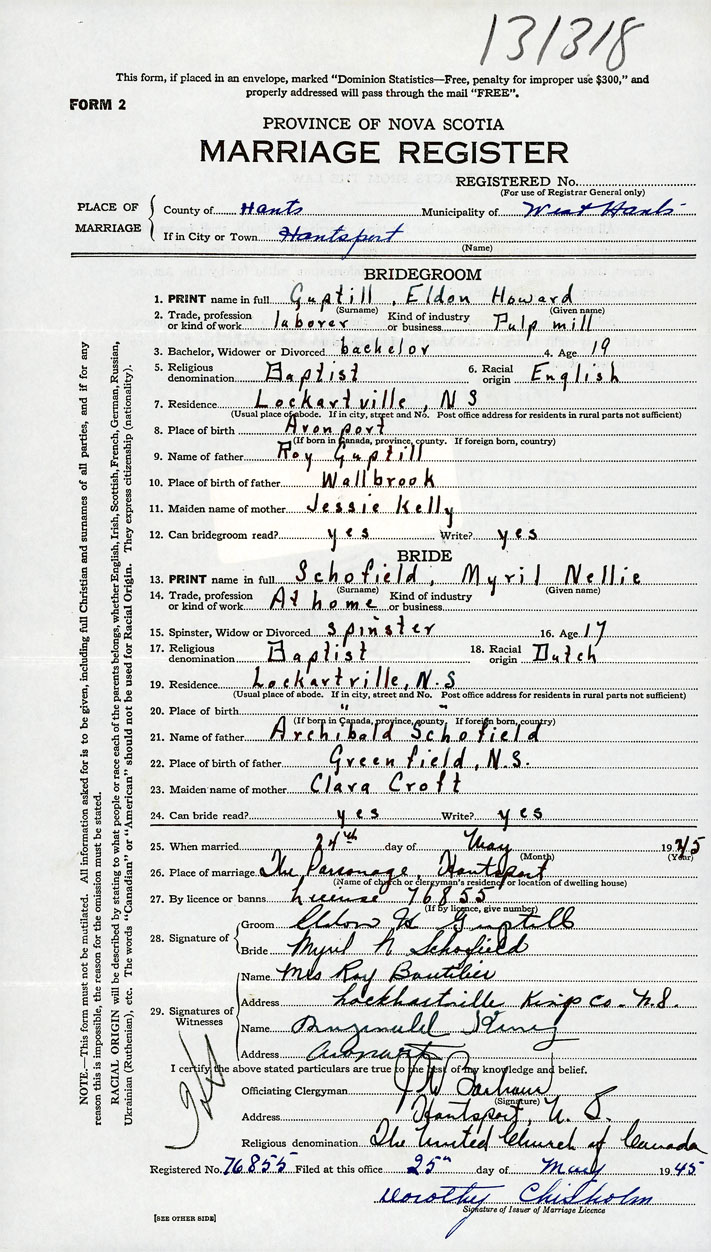 131318
This form, if placed in an envelope, marked "Dominion Statistics—Free, penalty for improper use $300," and
properly addressed will pass through the mail "FREE".
FORM 2
PROVINCE OF NOVA SCOTIA
MARRIAGE REGISTER
REGISTERED No.
(For use of Registrar General only)
PLACE OF MARRIAGE
County of Hants Municipality of West Hants
If in City or Town Hantsport
(Name)
BRIDEGROOM
1. PRINT name in full Guptill, Eldon Howard
(Surname) (Given name)
2. Trade, profession or kind of work laborer Kind of industry or business Pulp mill
3. Bachelor, Widower or Divorced bachelor 4. Age 19
5. Religious denomination Baptist 6. Racial origin English
7. Residence Lockartville, N S
(Usual place of abode. If in city, street and No. Post office address for residents in rural parts not sufficient)
8. Place of birth Avonport
(If born in Canada, province, county. If foreign born, country)
9. Name of father Roy Guptill
10. Place of birth of father Wallbrook
11. Maiden name of mother Jessie Kelly
12. Can bridegroom read? yes Write? yes
BRIDE
13. PRINT name in full Schofield, Myril Nellie
(Surname) (Given name)
14. Trade, profession or kind of work At home Kind of industry or business
15. Spinster, Widow or Divorced spinster 16. Age 17
17. Religious denomination Baptist 18. Racial origin Dutch
19. Residence Lockartville, N.S
(Usual place of abode. If in city, street and No. Post office address for residents in rural parts not sufficient)
20. Place of birth " "
(If born in Canada, province, county. If foreign born, country)
21. Name of father Archibald Schofield
22. Place of birth of father Greenfield, N.S.
23. Maiden name of mother Clara Croft
24. Can bride read? yes Write? yes
25. When married 24th day of May 1945
(Month) (Year)
26. Place of marriage The Parsonage, Hantsport
(Name of church or clergyman's residence or location of dwelling house)
27. By licence or banns License 76855
(If by licence, give number)
28. Signature of
Groom Eldon H Guptill
Bride Myril N Schofield
29. Signatures of Witnesses
Name Mrs Roy Boutilier
Address Lockhartville Kings Co. N.S.
Name
Address Avonport
I certify the above stated particulars are true to the best of my knowledge and belief.
Officiating Clergyman
(Signature)
Address Hantsport, N. S.
Religious denomination The United Church of Canada
Registered No. 76855 Filed at this office 25th day of May 1945
Dorothy Chisholm
Signature of Issuer of Marriage Licence
[SEE OTHER SIDE]
NOTE.—This form must not be mutilated. All information asked for is to be given, including full Christian and surnames of all parties, and if for any
reason this is impossible, the reason for the omission must be stated.
RACIAL ORIGIN will be described by stating to what people or race each of the parents belongs, whether English, Irish, Scottish, French, German, Russian,
Ukrainian (Ruthenian), etc. The words "Canadian" or "American" should not be used for Racial Origin. They express citizenship (nationality).